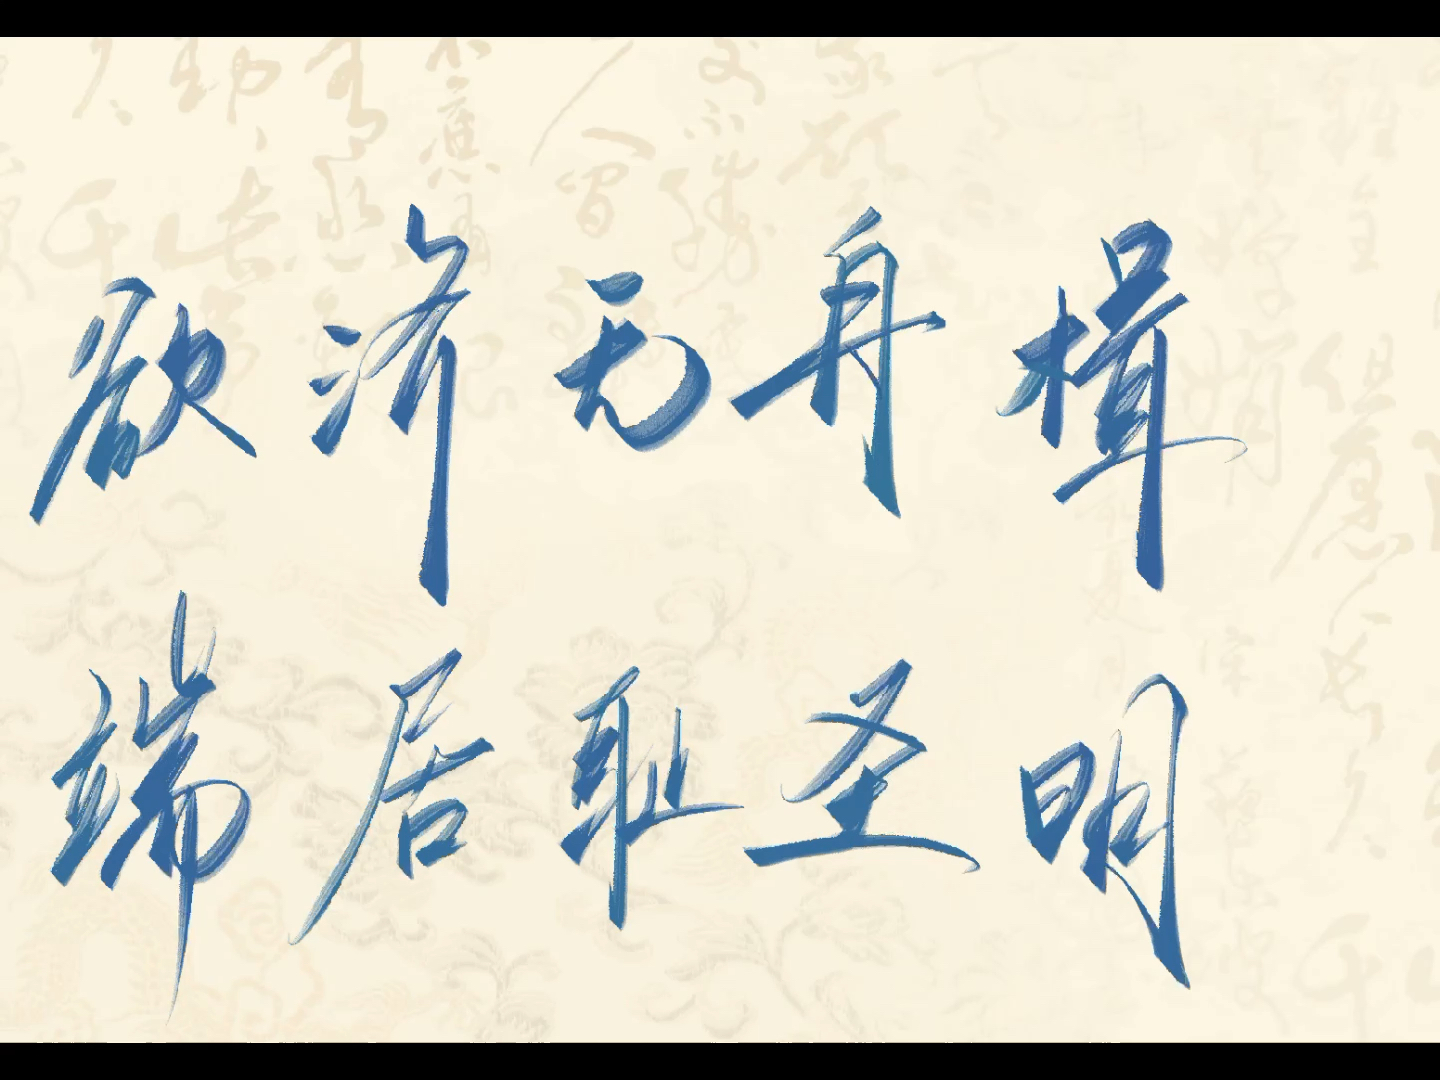 欲济无舟楫
端居耻圣明